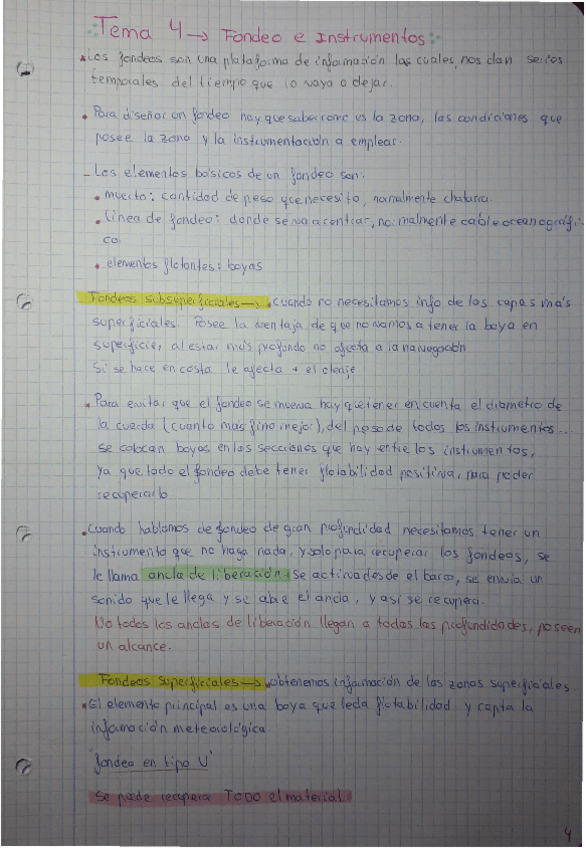 Tema 4 → Fondeo e Instrumentos
• Los fondeos son una plataforma de información las cuales, nos dan series
temporales del tiempo que lo vaya a dejar.
• Para diseñar un fondeo hay que saber como es la zona, las condiciones que
posee la zona y la instrumentación a emplear.
- Los elementos básicos de un fondeo son:
• muerto: cantidad de peso que necesito, normalmente chatarra.
• Línea de fondeo: donde se va a centrar, normalmente cable oceanográfi-
co
• elementos flotantes: boyas
Fondeos subsuperficiales → • cuando no necesitamos info de las capas más
superficiales. Posee la ventaja de que no vamos a tener la boya en
superficie, al estar más profundo no afecta a la navegación
Si se hace en costa le afecta + el oleaje
• Para evitar que el fondeo se mueva hay que tener en cuenta el diametro de
la cuerda (cuanto más fino mejor), del peso de todos los instrumentos...
se colocan boyas en las secciones que hay entre los instrumentos,
ya que todo el fondeo debe tener flotabilidad positiva, para poder
recuperarlo
• Cuando hablamos de fondeo de gran profundidad necesitamos tener un
instrumento que no haga nada, y solo para recuperar los fondeos, se
le llama ancla de liberación: se activa desde el barco, se envía un
sonido que le llega y se abre el ancla, y así se recupera.
No todos los anclas de liberación llegan a todas las profundidades, poseen
un alcance.
Fondeos superficiales → • obtenemos información de las zonas superficiales
• El elemento principal es una boya que le da flotabilidad y capta la
información meteorológica.
'fondeo en tipo U'
Se puede recupera TODO el material.
4